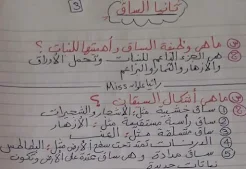 ثانيا الساق
3
ما هي وظيفة الساق وأهميتها للنبات ؟
هي الجزء الداعم للنبات وتحمل الأوراق
والأزهار والثمار والبراعم
Miss
ما هي أشكال السيقان ؟
① ساق خشبية مثل الأشجار والشجيرات
② ساق رأسية مستقيمة مثل: الأزهار
③ ساق متسلقة مثل:
④ الدرنات تمتد تحت سطح الأرض مثل: البطاطس
⑤ ساق مدادة وهي ساق ممتدة على الأرض وتكون
نباتات جديدة